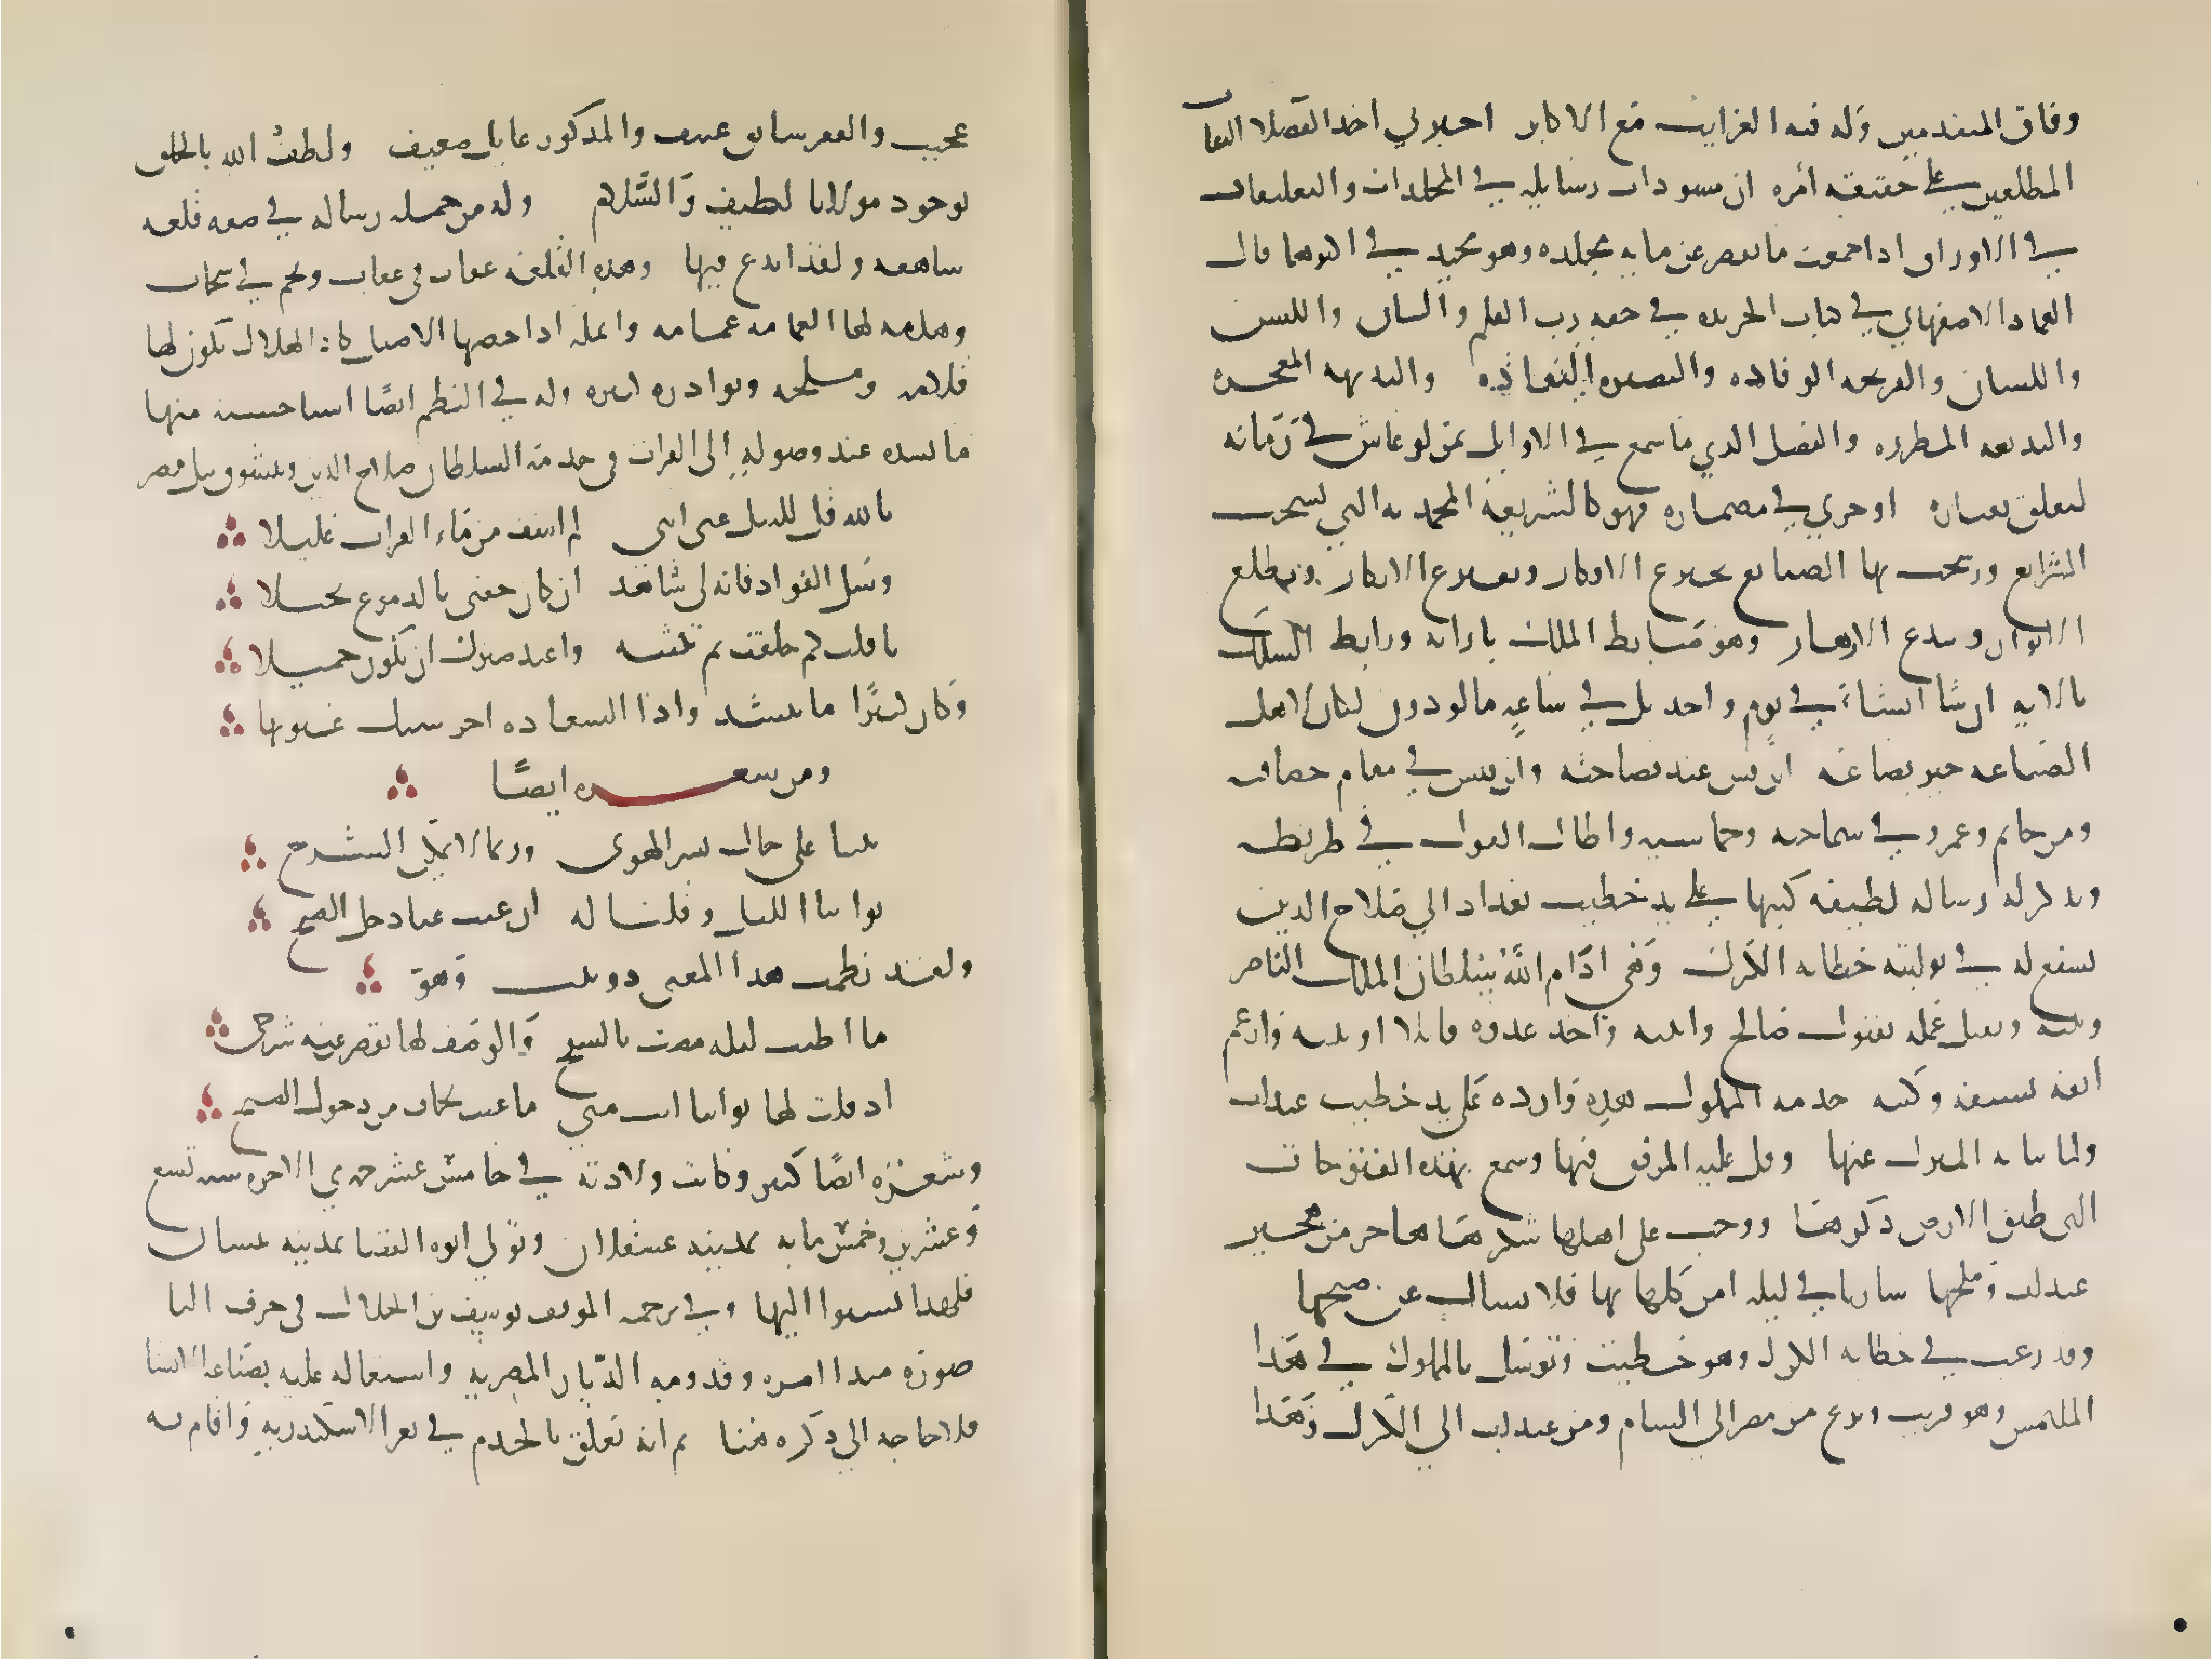 وفاق المتقدمين وله فيه الغرايب مع الاكابر اخبرني احد الفضلا الثقات
المطلعين على حقيقة أمره ان مسودات رسايله في المجلدات والتعليقات
في الاوراق اذا جمعت ما تقصر عن مايه مجلده وهو مجيد في اكثرها قال
العماد الاصفهاني في كتاب الخريده في حقه رب القلم والبيان واللسن
واللسان والقريحه الوقاده والبصيره النقاده والبديهه المعجزه
والبديعه المطرزه والفضل الذي ما سمع في الاوايل بمن لو عاش في زمانه
لتعلق بغباره او جري في مضماره فهو كالشريعة المحمديه التي نسخت
الشرايع ورسخت بها الصنايع يخترع الافكار ويفترع الابكار ويطلع
الانوار ويبدع الازهار وهو ضابط الملك بارايه ورابط السلك
بالايه ان شا انشاء في يوم واحد بل في ساعه ما لو دون لكان لاهل
الصناعه خير بضاعه اين قس عند فصاحته واين قيس في مقام حصافته
ومن حاتم وعمرو في سماحته وحماسته واطال القول في تقريظه
ونذكر له رساله لطيفه كتبها على يد خطيب عيذاب الي صلاح الدين
يتشفع له في توليته خطابه الكرك وهي ادام الله سلطان الملك الناصر
وثبته وتقبل عمله بقبول صالح وانبته واخذ عدوه قايلا او بيته وارغم
انفه بسيفه وكبته خدمه المملوك هذه وارده على يد خطيب عيذاب
ولما نبا به المنزل عنها وقل عليه المرفق فيها وسمع بهذه الفتوحات
التي طبق الارض ذكرها ووجب على اهلها شكرها هاجر من هجير
عيذاب وملحها ساريا في ليله امل كلها نهار فلا يسال عن صبحها
وقد رغب في خطابه الكرك وهو خطيب وتوسل بالمملوك في هذا
الملتمس وهو قريب ونزع من مصر الي الشام ومن عيذاب الي الكرك وهذا
عجيب والفقر سايق عنيف والمذكور عايل ضعيف ولطف الله بالخلق
بوجود مولانا لطيف والسلام وله من جمله رساله في صفه قلعه
شاهقه ولقد ابدع فيها وهذه القلعه عقاب في عقاب ونجم في سحاب
وهامه لها الغمامه عمامه وانمله اذا خضبها الاصيل كان الهلال يكون لها
قلامه وملحه ونوادره كثيره وله في النظم ايضا اشيا حسنه منها
ما انشده عند وصوله إلى الفرات في خدمة السلطان صلاح الدين ويتشوق نيل مصر
بالله قل للنيل عني انني لم اشف من ماء الفرات غليلا
وسل الفواد فانه لي شاهد ان كان جفني بالدموع بخيلا
يا قلب كم خلفت ثم بثينه واعيذ صبرك ان يكون جميلا
وكان كثيرا ما ينشد واذا السعاده احرستك عيونها
ومن شعره ايضًا
بتنا على حال يسر الهوى وربما لا يمكن الشرح
بوابنا الليل وقلنا له ان غبت عنا دخل الصبح
ولقد نظمت هذا المعنى دوبيت وهو
ما اطيب ليله مضت بالسفح والوصف لها يقصر عنه شرحي
اذ قلت لها بوابنا انت متي ما غبت نخاف من دخول الصبح
وشعره ايضًا كثير وكانت ولادته في خامس عشر جمدي الاخره سنه تسع
وعشرين وخمس مايه بمدينه عسقلان وتولي ابوه القضا بمدينه بيسان
فلهذا نسبوا اليها وفي ترجمه الموفق يوسف بن الخلال في حرف اليا
صوره مبدا امره وقدومه الديار المصريه واشتغاله عليه بصناعه الانشا
فلا حاجه الي ذكره هنا ثم انه تعلق بالخدم في ثغر الاسكندريه واقام به